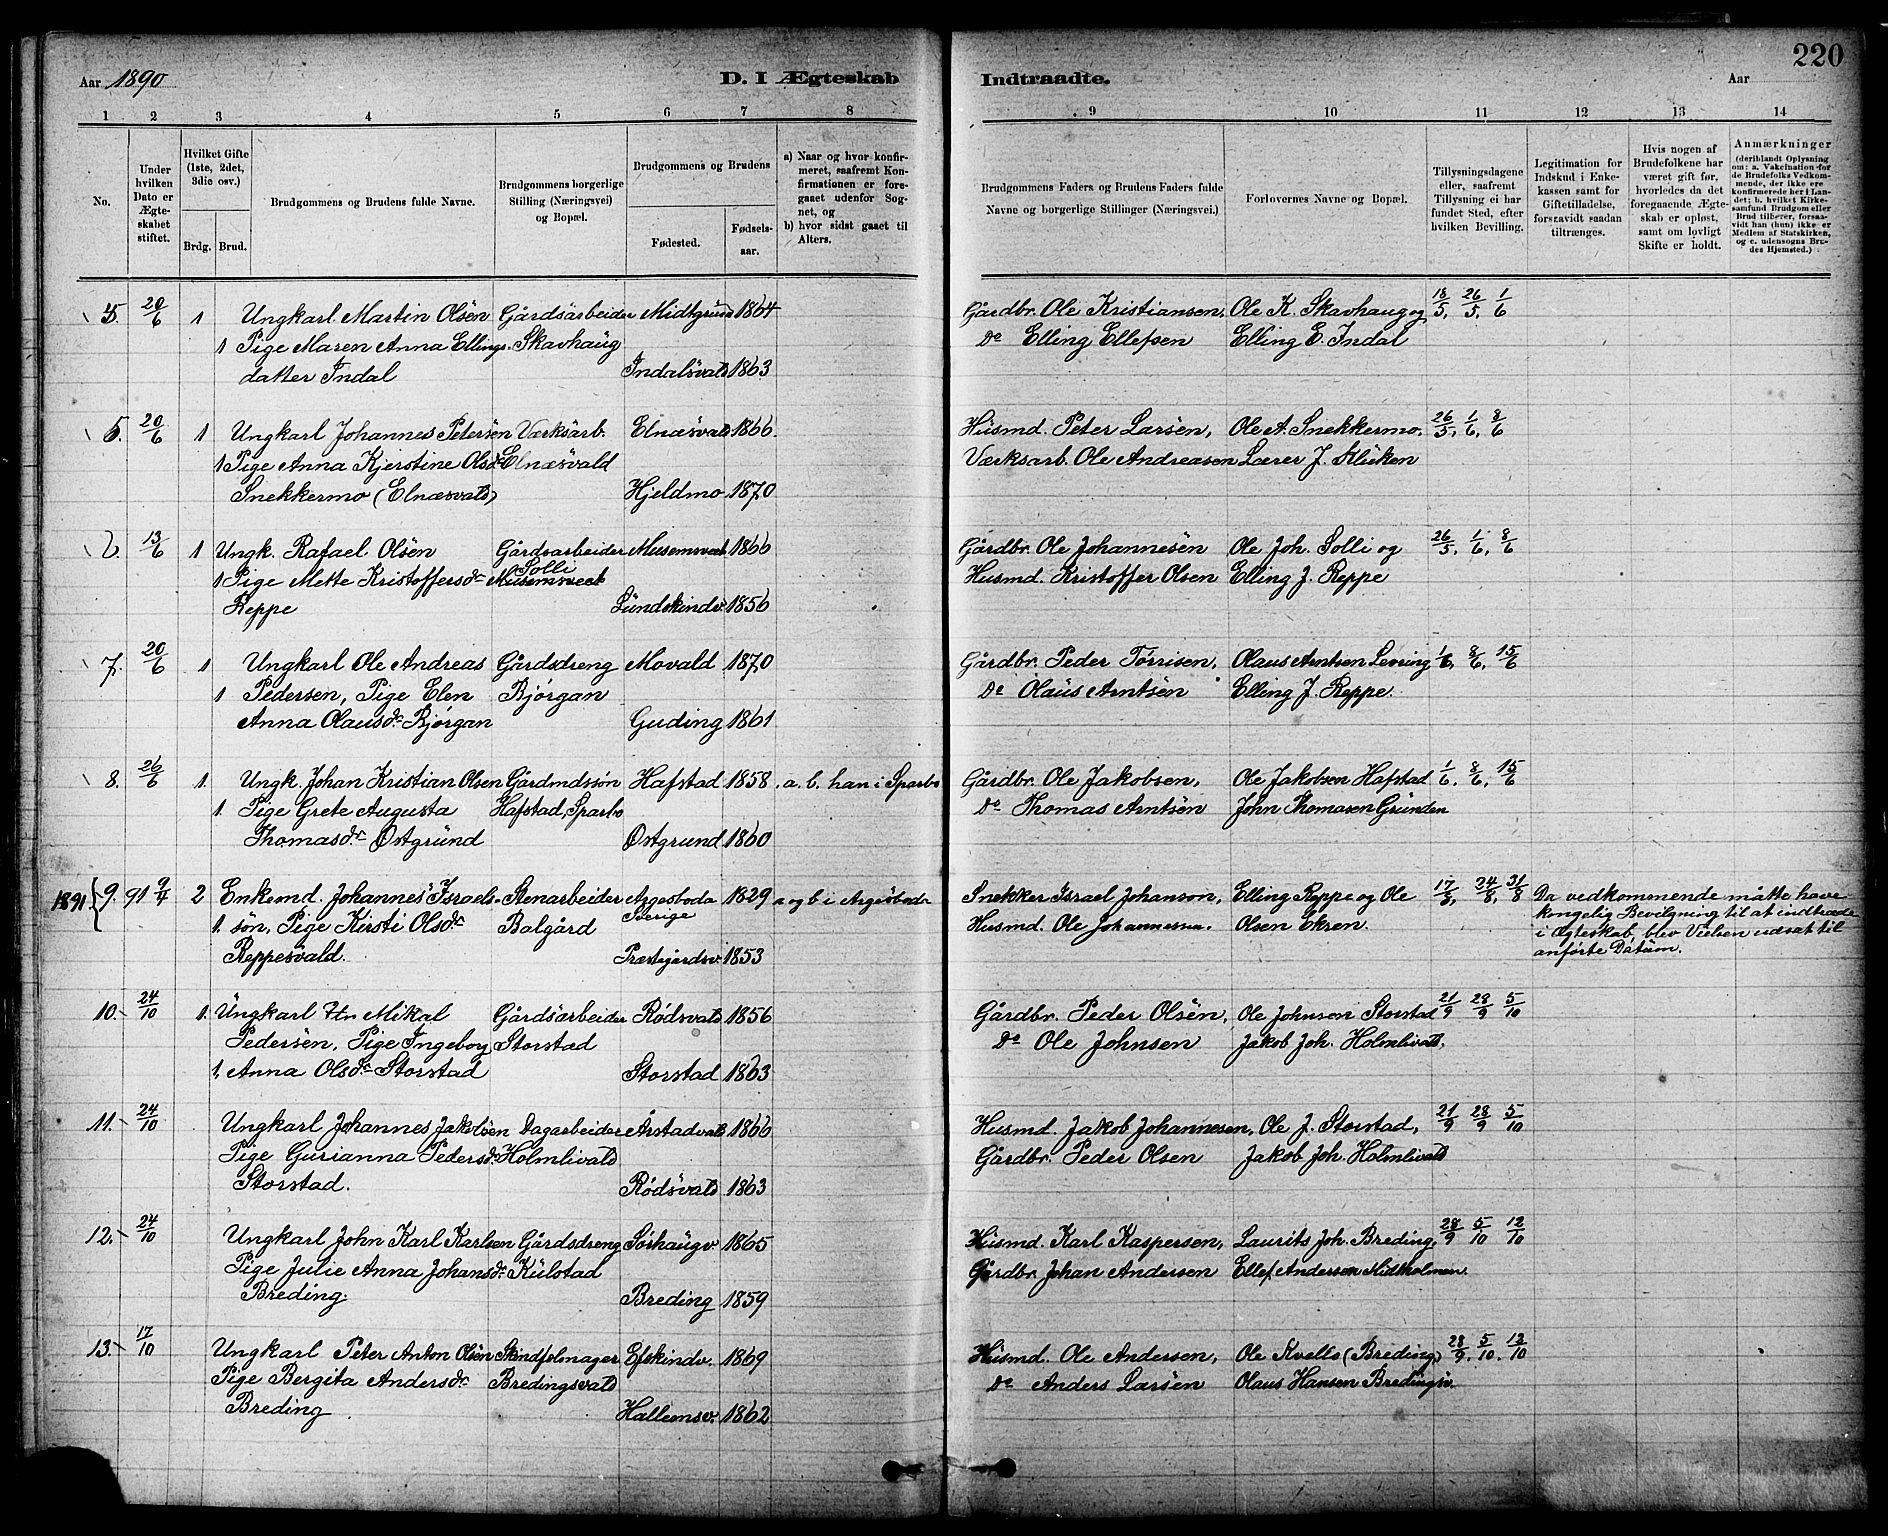 220
Aar 1890
D. I Ægteskab
Indtraadte.
Aar
1 2 3 4 5 6 7 8 9 10 11 12 13 14
No.
Under hvilken Dato er Ægteskabet stiftet.
Hvilket Gifte (1ste, 2det, 3die osv.)
Brdg. Brud.
Brudgommens og Brudens fulde Navne.
Brudgommens borgerlige Stilling (Næringsvei) og Bopæl.
Brudgommens og Brudens
Fødested.
Fødselsaar.
a) Naar og hvor konfirmeret, saafremt Konfirmationen er foregaaet udenfor Sognet, og
b) hvor sidst gaaet til Alters.
Brudgommens Faders og Brudens Faders fulde Navne og borgerlige Stillinger (Næringsvei.)
Forlovernes Navne og Bopæl.
Tillysningsdagene eller, saafremt Tillysning ei har fundet Sted, efter hvilken Bevilling.
Legitimation for Indskud i Enkekassen samt for Giftetilladelse, forsaavidt saadan tiltrænges.
Hvis nogen af Brudefolkene har været gift før, hvorledes da det foregaaende Ægteskab er opløst, samt om lovligt Skifte er holdt.
Anmærkninger (deriblandt Oplysning om: a. Vakcination for de Brudefolks Vedkommende, der ikke ere konfirmerede her i Landet; b. hvilket Kirkesamfund Brudgom eller Brud tilhører, forsaavidt han (hun) ikke er Medlem af Statskirken, og c. udensogns Brudes Hjemsted.)
20/6 1 Ungkarl Martin Olsen Gårdsarbeider Midtgrund 1864 Gårdbr. Ole Kristiansen, Ole K. Skavhaug og 18/5, 26/5, 1/6
1 Pige Maren Anna Ellings- Skavhaug Do Elling Ellefsen Elling E. Indal
datter Indal Indalsvald 1863
5. 20/6 1 Ungkarl Johannes Petersen Værksarb. Elnæsvald 1866. Husmd. Peter Larsen, Ole A. Snekkermo, 26/5, 1/6, 8/6
1 Pige Anna Kjerstine Olsdr Elnæsvald Værksarb. Ole Andreasen Lærer J. Slüken
Snekkermo (Elnæsvald) Hjeldmo 1870
6. 13/6 1 Ungk. Rafael Olsen Gårdsarbeider Musemsvald 1866 Gårdbr. Ole Johannesen Ole Joh. Solli og 26/5, 1/6, 8/6
Solli
1 Pige Mette Kristoffersdr Musemsvald Husmd. Kristoffer Olsen Elling J. Reppe
Reppe Sundskindv. 1856
7. 20/6 1 Ungkarl Ole Andreas Gårdsdreng Movald 1870 Gårdbr. Peder Tørrisen, Olaus Arntsen Levring 1/6, 8/6, 15/6
1 Pedersen, Pige Elen Bjørgan Do Olaus Arntsen Elling J. Reppe.
Anna Olausdr Bjørgan Guding 1861
8. 26/6 1. Ungk. Johan Kristian Olsen Gårdmdssøn Hafstad 1858. a. b. han i Sparbo Gårdbr. Ole Jakobsen, Ole Jakobsen Hafstad 1/6, 8/6, 15/6
1. Pige Grete Augusta Hafstad, Sparbo Do Thomas Arntsen John Thomasen Grunden
Thomasdr Østgrund Østgrund 1860
1891 { 9. 91 9/4 2 Enkemd. Johannes Israels- Stenarbeider Argosboda 1829 a og b i Argosboda Snekker Israel Johanson, Elling Reppe og Ole 17/8, 24/8, 31/8 Da vedkommende måtte have
Sverige kongelig Bevilgning til at indtræde
1. søn, Pige Kirsti Olsdr Balgård Husmd. Ole Johannessen. Olsen Ekren. i Ægteskab, blev Vielsen udsat til
Reppesvald. Præstegårdsv. 1853 anførte Dátum.
10. 24/10 1. Ungkarl Mikal Gårdsarbeider Rødsvald 1856 Gårdbr. Peder Olsen, Ole Johnsen Storstad 21/9 28/9 5/10
Pedersen, Pige Ingebog Storstad Do Ole Johnsen Jakob Joh. Holmlivald.
1. Anna Olsdr Storstad Storstad 1863
11. 24/10 Ungkarl Johannes Jakobsen Dagarbeider Årstadvald 1866 Husmd. Jakob Johannesen, Ole J. Storstad, 21/9 28/9 5/10
Pige Gurianna Pedersdr. Holmlivald Gårdbr. Peder Olsen Jakob Joh. Holmlivald
Storstad. Rødsvald 1863
12. 24/10 Ungkarl John Karl Karlsen Gårdsdreng Sørhaugv. 1865 Husmd. Karl Kaspersen, Laurits Joh. Breding 28/9 5/10 12/10
Pige Julie Anna Johansdr Kulstad Gårdbr. Johan Andersen Ellef Andersen Midtholmen.
Breding. Breding 1859
13. 17/10 Ungkarl Peter Anton Olsen Skindfelmager Efskindv. 1869 Husmd. Ole Andersen, Ole Kvello (Breding) 28/9. 5/10. 12/10
Pige Bergita Andersdr Bredingsvald Do Anders Larsen Olaus Hansen Bredingsv.
Breding Hallemsv. 1862